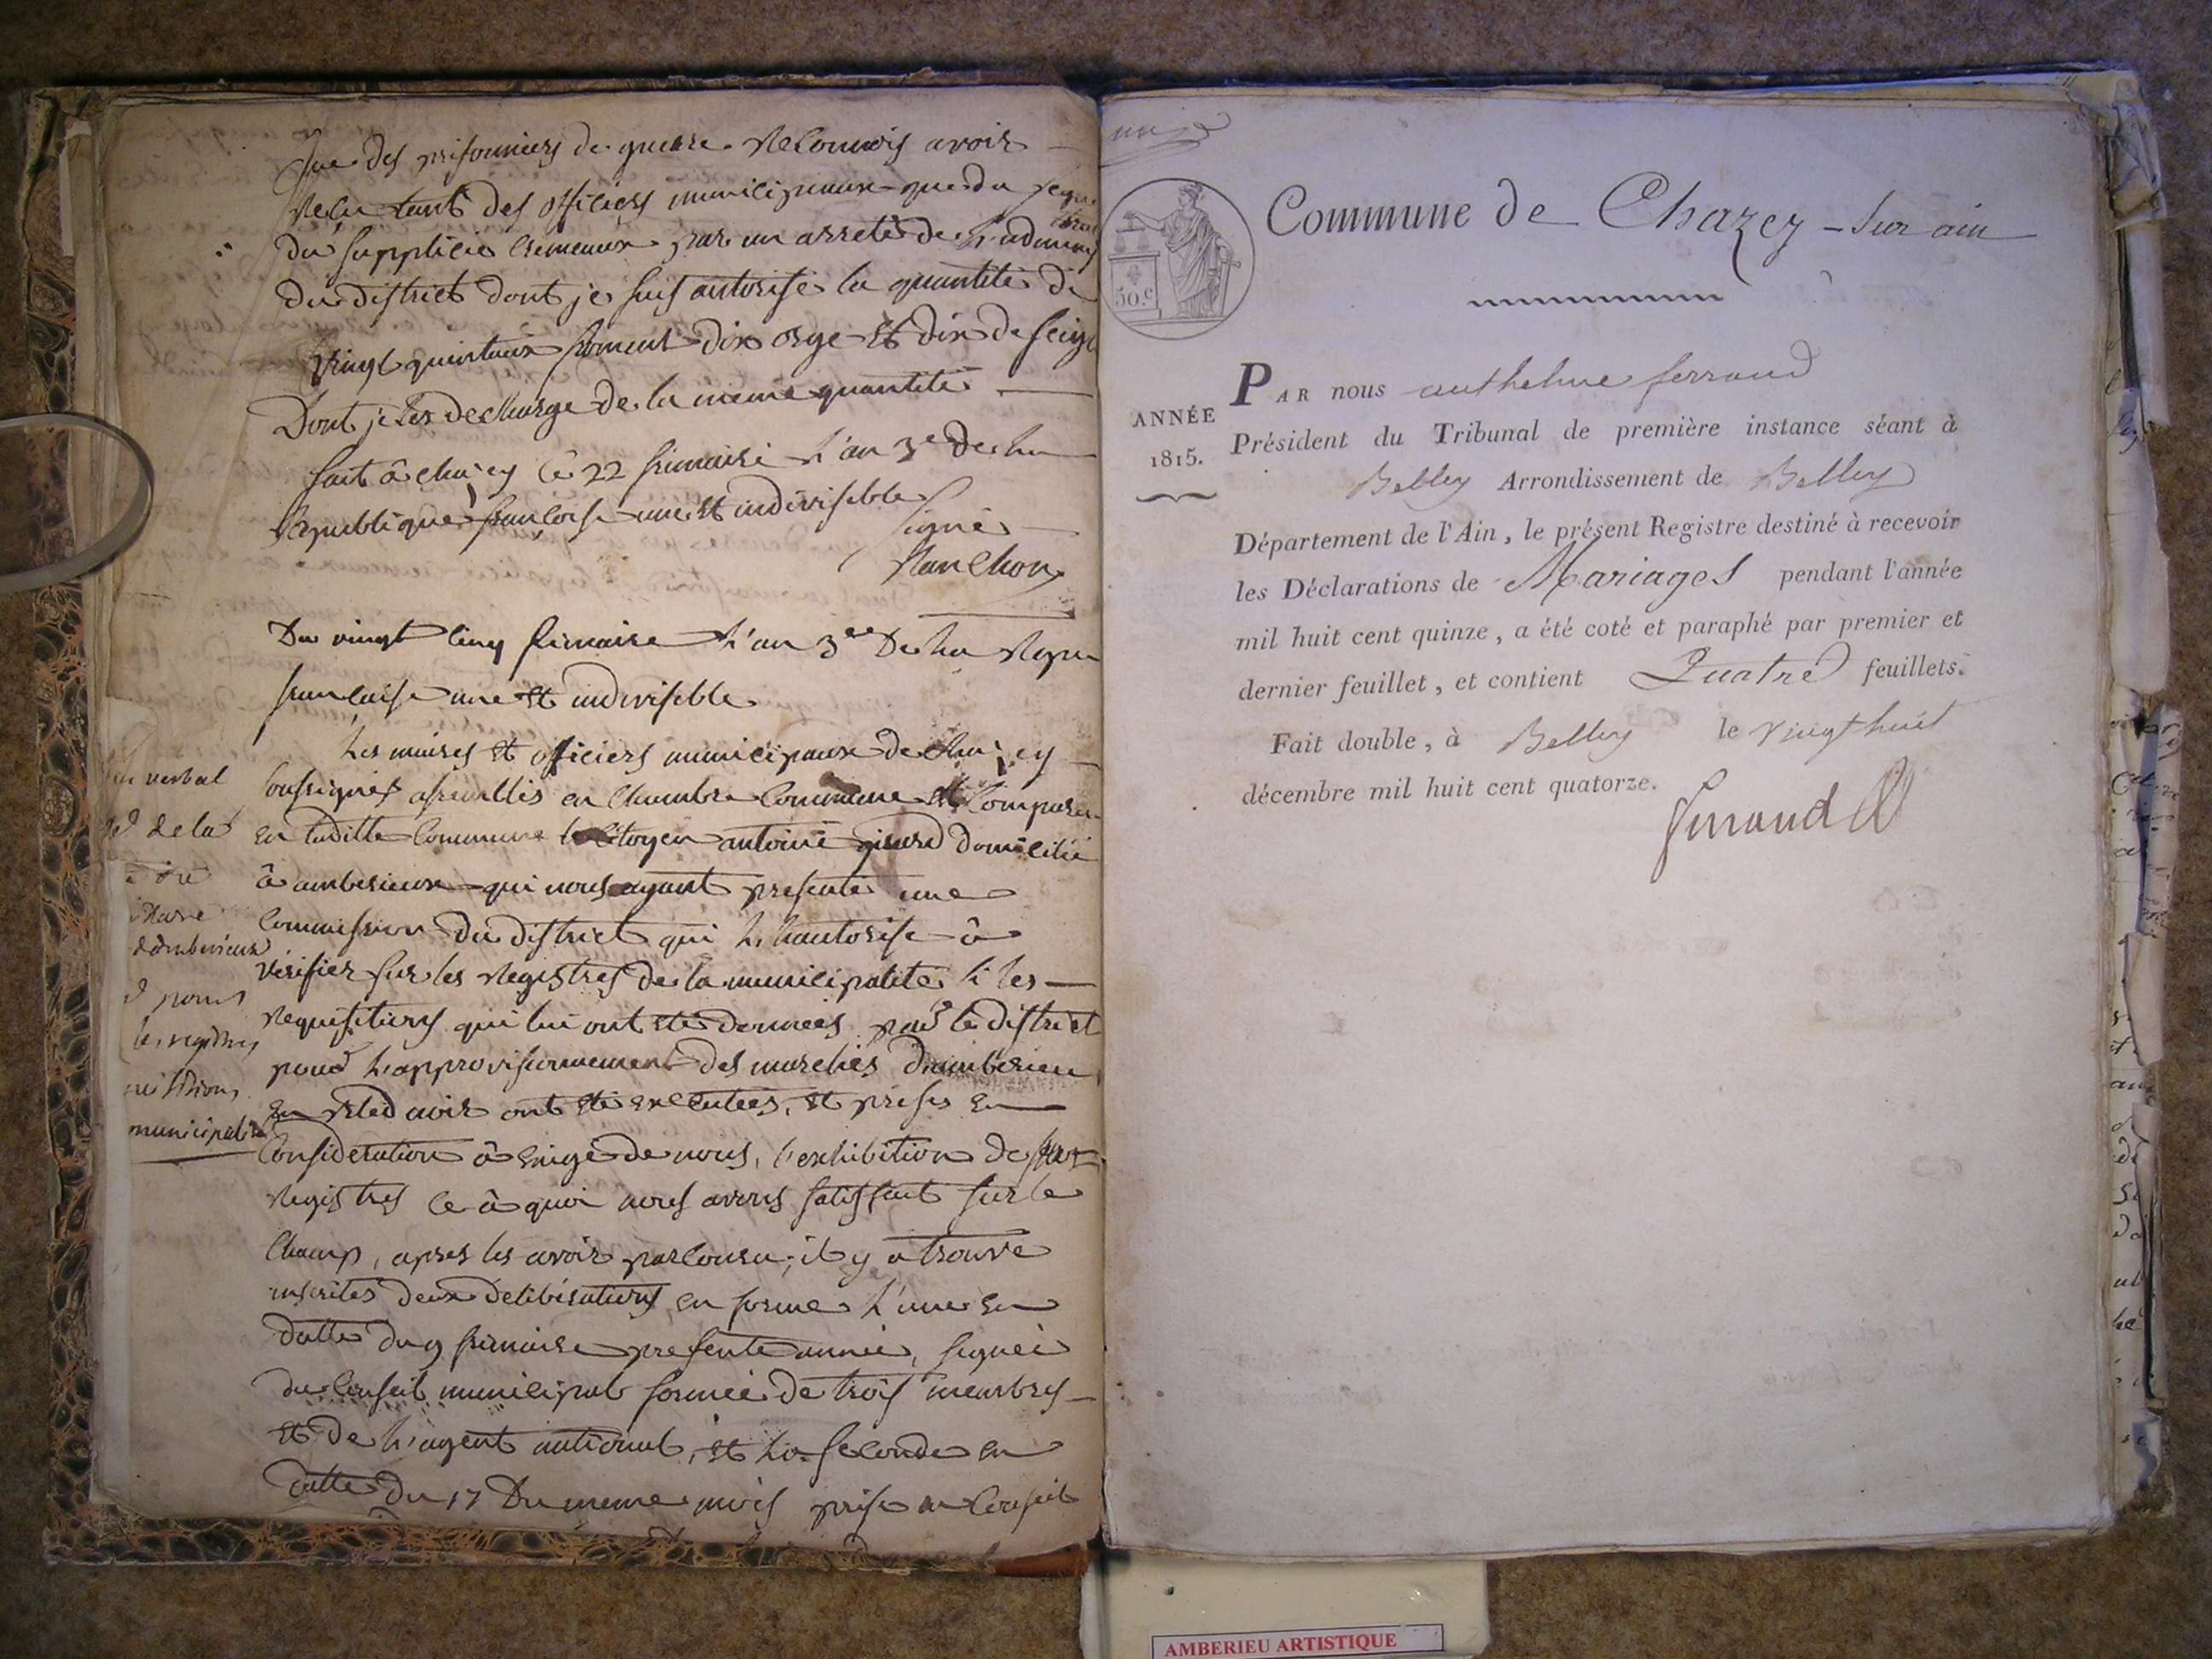 que des prisonniers de guerre. Reconnois avoir
Recu tant des officiers municipaux que du
du supplicié Cremeaux par un arreté de L'admin
du district dont je suis autorisé la quantité de
Vingt quintaux froment dix orge et dix de seigl
Dont je les decharge de la meme quantité
fait â chazey le 22 frimaire L'an 3e de La
Republique françoise une et indivisible
signé
Ranchon
Du vingt cinq frimaire L'an 3ee De La Repu
francaise une et indivisible
Les maires et officiers municipaux de chazey
soussignés assemblés en Chambre Commune et Comparu
en laditte Commune le Citoyen antoine girard domicilié
â amberieux qui nous ayant presenté une
Commission du district qui L'hautorise â
Vérifier sur les Registres de la municipalité si les
Requisitions qui lui ont eté données par le district
pour L'approvisionnement des marchés d'amberieu
avoir ont eté executées, et prises en
Consideration â Exigé de nous, l'exhibition de
Registres ce â quoi nous avons satisfait sur le
Champ, apres les avoir parcouru, il y a trouvé
inscrites deux deliberations en forme L'une en
datte du 9 frimaire presente année, signée
du Conseil municipal formée de trois membres
et de L'agent national, et La seconde en
datte du 17 Du meme mois prise en Conseil
verbal
de la
d'amberieux
les registres
municipalité
Commune de Chazey-sur ain
50.c
ANNÉE
1815.
PAR nous anthelme ferrand
Président du Tribunal de première instance séant à
Belley Arrondissement de Belley
Département de l'Ain, le présent Registre destiné à recevoir
les Déclarations de Mariages pendant l'année
mil huit cent quinze, a été coté et paraphé par premier et
dernier feuillet, et contient Quatre feuillets.
Fait double, à Belley le vingt huit
décembre mil huit cent quatorze.
ferrand
AMBERIEU ARTISTIQUE